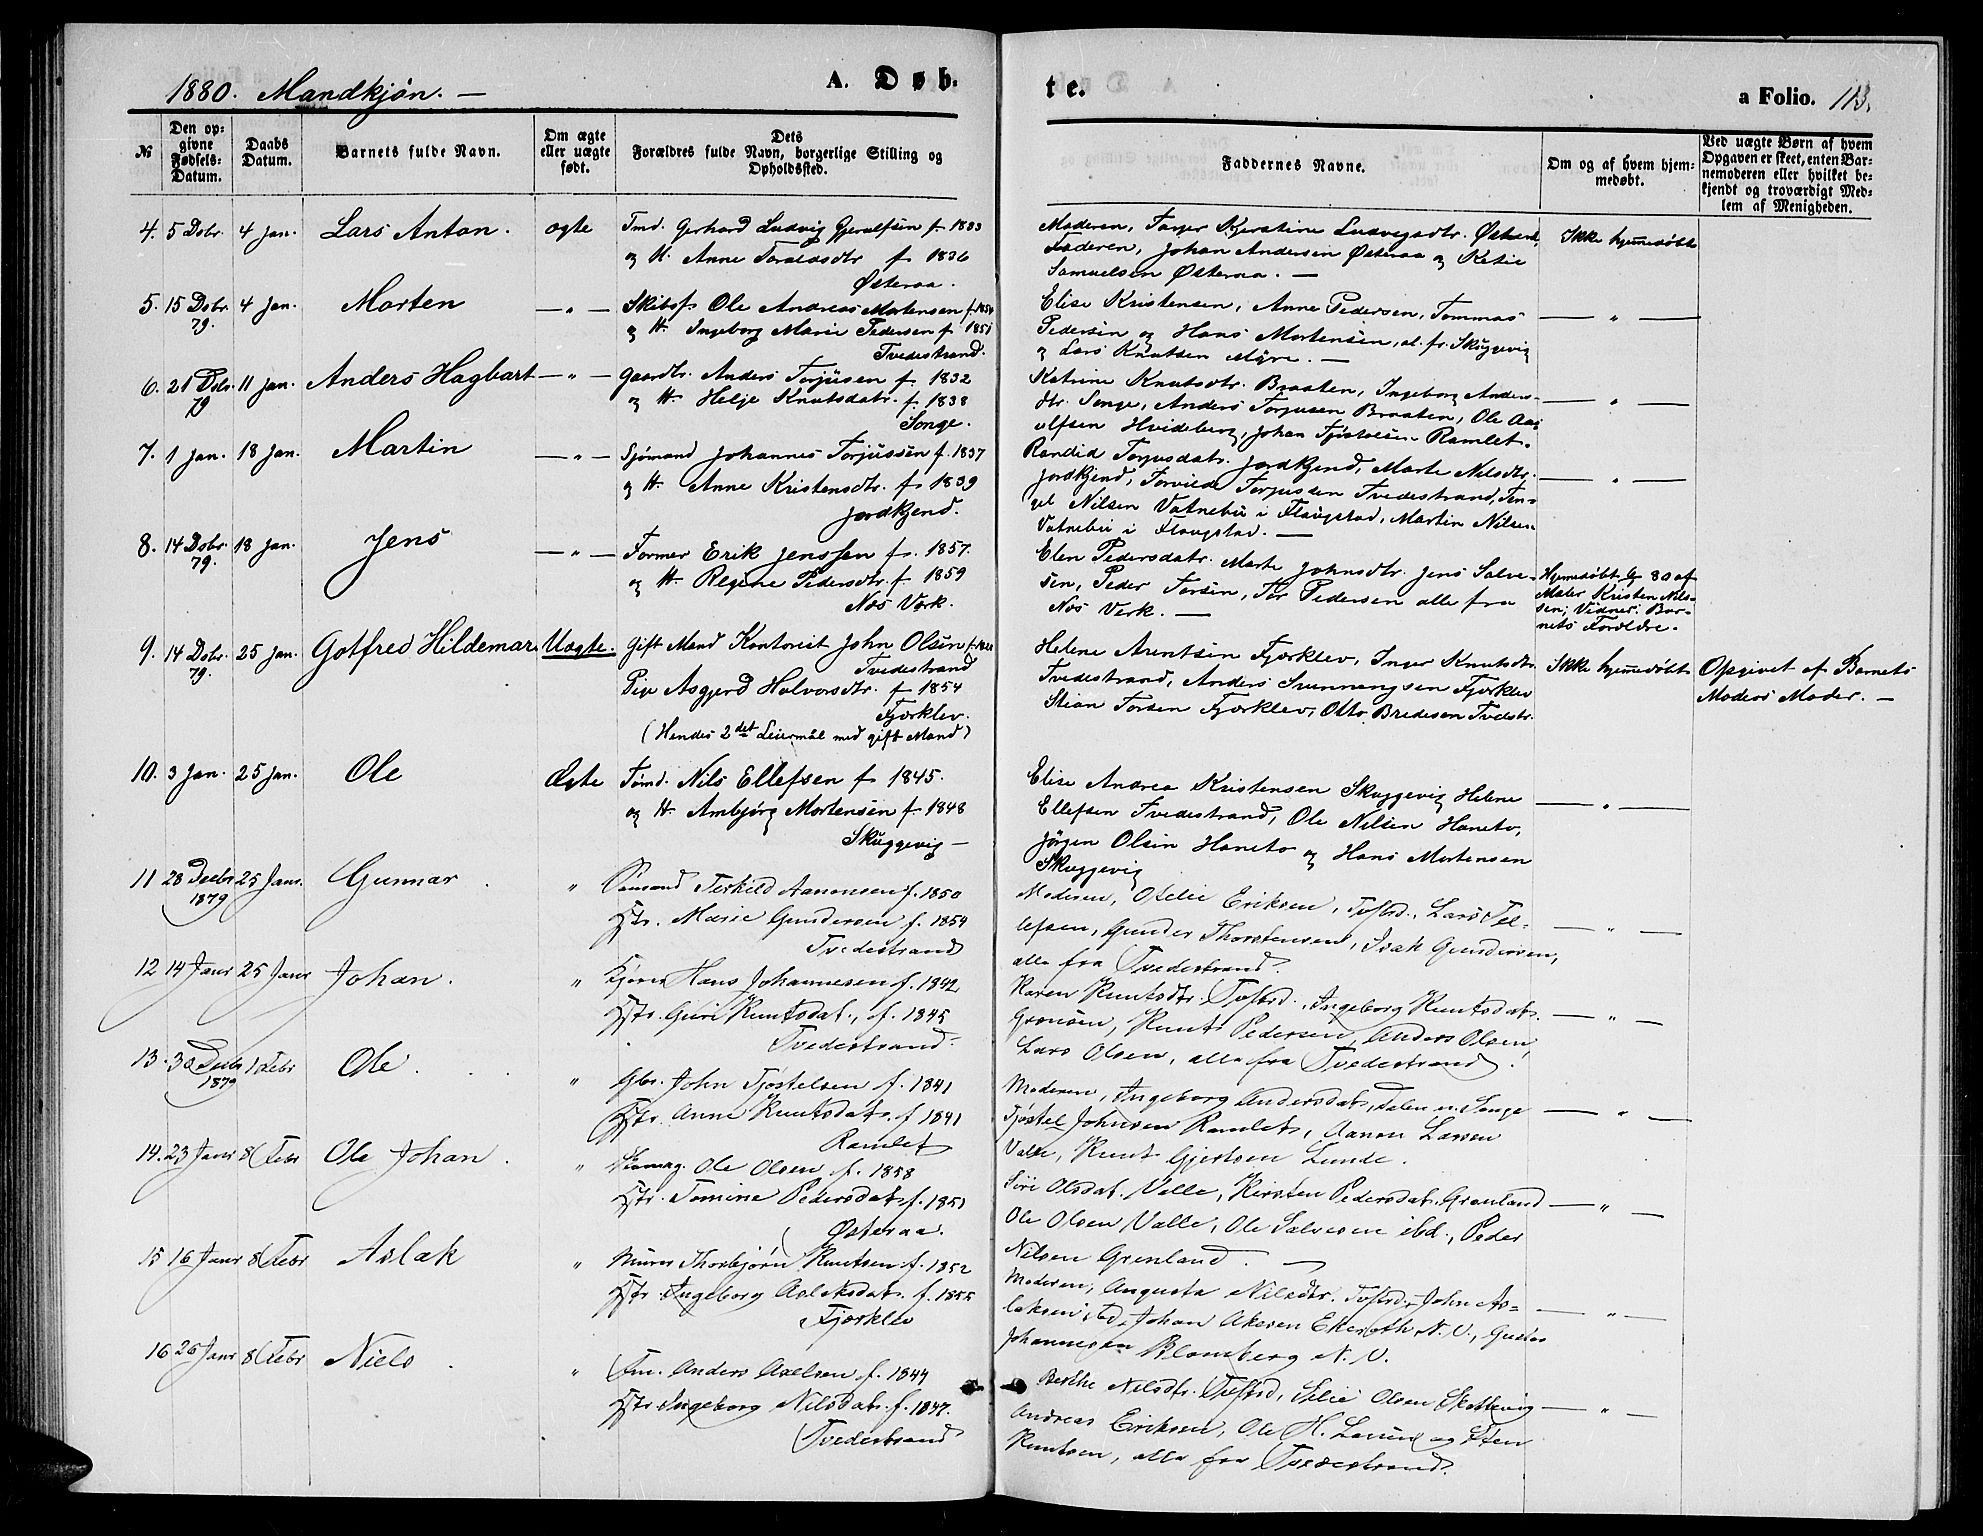 1880. Mandkjøn. —
A. Døb-
te.
a Folio. 113.
№
Den op-
givne
Fødsels-
Datum.
Daabs
Datum.
Barnets fulde Navn.
Om ægte
eller uægte
født.
Dets
Forældres fulde Navn, borgerlige Stilling og
Opholdssted.
Faddernes Navne.
Om og af hvem hjem-
medøbt.
Ved uægte Børn af hvem
Opgaven er skeet, enten Bar-
nemoderen eller hvilket be-
kjendt og troværdigt Med-
lem af Menigheden.
4. 5 Dcbr. 4 Jan. Lars Anton. ægte Tmd. Gerhard Ludvig Gjerulfsen f. 1883
og H. Anne Toraldsdtr f. 1836
Østeraa.
Moderen, Torger Kjerstine Ludvigsdtr.
Faderen, Johan Andersen Østeraa og Ketil
Samuelsen Østeraa. —
Ikke hjemmedøbt
5. 15 Dcbr. 79. 4 Jan. Morten — „ — Skibsf. Ole Andreas Mortensen f. 1850
og H. Ingeborg Marie Pedersen f. 1851
Tvedestrand.
Elise Kristensen, Anne Pedersen, Tommas
Pedersen og Hans Mortensen, al. fr. Skuggevig
og Lars Knutsen Myre. —
— „ —
6. 21 Dcbr. 79 11 Jan. Anders Hagbart — „ — Gaardbr. Anders Torjusen f. 1832
og H. Helje Knutsdatr. f. 1838
Songe.
Katrine Knutsdtr. Braaten, Ingeborg Anders-
dtr. Songe, Anders Torjusen Braaten, Ole Aas
ulfsen Hvideberg, Johan Tjøstolsen Ramlet.
— „ —
7. 1 Jan. 18 Jan. Martin — „ — Sjømand Johannes Torjussen f. 1837
og H. Anne Kristensdtr. f. 1839
Jordkjend.
Randid Torjusdatr. Jordkjend, Marte Nilsdtr.
Jordkjend, Torvild Torjussen Tvedestrand, Ten-
gel Nilsen Vatnebu i Flaugstad, Martin Nilsen
Vatnebu i Flaugstad. —
— „ —
8. 14 Dcbr. 79. 18 Jan. Jens — „ — Former Erik Jenssen f. 1857.
og H. Regine Pedersdtr. f. 1859
Næs Værk.
Elen Pedersdatr. Marte Johnsdtr. Jens Salve-
sen, Peder Torsen, Tor Pedersen alle fra
Næs Verk. —
Maler Kristen Nils-
sen; Vidner: Bar-
nets Forældre.
9. 14 Dcbr. 79. 25 Jan. Gotfred Hildemar. Uægte. Gift Mand Kontorist John Olsen
Tvedestrand
Pige Asgjerd Halvorsdtr. f. 1854
Fjærklev.
(Hendes 2det Leiermål med gift Mand)
Helene Arentsen Fjærklev, Inger Knutsdtr.
Tvedestrand, Anders Svenningsen Fjærklev
Stian Torsen Fjærklev, Otto Bredesen Tvedestr.
Ikke hjemmedøbt
Opgivet af Barnets
Moders Moder. —
10. 3 Jan. 25 Jan. Ole Ægte Tømd. Nils Ellefsen f. 1845.
og H. Ambjørg Mortensen f. 1848
Skuggevig —
Elise Andrea Kristensen Skuggevig Helene
Ellefsen Tvedestrand, Ole Nilsen Haneto,
Jørgen Olsen Haneto og Hans Mortensen
Skuggevig
— „ —
11 28 Decbr 1879 25 Janr. Gunnar „ Sømand Terkild Aanonsen f. 1850
Hstr. Marie Gundersen f. 1854
Tvedestrand
Moderen, Ofelie Eriksen, Tvfstrd., Lars Tel-
lefsen, Gunder Thorstensen, Isak Gundersen,
alle fra Tvedestrand.
— „ —
12 14 Janr 25 Janr Johan. „ Hans Johannesen f. 1842
Hstr. Guri Knutsdat., f. 1845
Tvedestrand.
Karen Knutsdtr. Tvfstrd., Ingeborg Knutsdat.
Knut Pedersen, Anders Olsen,
Lars Olsen, alle fra Tvedestrand.
— „ —
13. 30 Decbr 1879 1 Febr Ole. „ Gbr. John Tjøstelsen f. 1841
Hstr. Anne Knutsdat. f. 1841
Ramlet
Moderen, Ingeborg Andersdat., Dalen u. Songe
Tjøstel Johnsen Ramlet, Aanon Larsen
Valle, Knut Gjertsen Lunde.
— „ —
14. 23 Janr 8 Febr Ole Johan. „ Skomag. Ole Olsen f. 1858
Hstr. Tomine Pedersdat. f. 1851
Østeraa.
Siri Olsdat. Valle, Kirsten Pedersdat. Grønland
Ole Olsen Valle, Ole Salvesen ibd., Peder
Nilsen Grenland. —
— „ —
15 16 Janr 8 Febr Aslak „ Murer Thorbjørn Knutsen f. 1852
Hstr. Ingeborg Aslaksdat. f. 1855
Fjærklev
Moderen, Augusta Nilsdtr. Tvfstrd., John As-
laksen ibd., Johan Akersen Ekeroth N. V., Gustav
Johannesen Blomberg N. V.
— „ —
16 26 Janr 8 Febr Niels. „ Tm. Anders Axelsen f. 1844
Hstr. Ingeborg Nilsdat. f. 1847.
Tvedestrand
Berthe Nilsdtr. Tvfstrd, Silie Olsen Skottevig
Andreas Eriksen, Ole H. Larsen og Sten
Knutsen, alle fra Tvedestrand.
— „ —